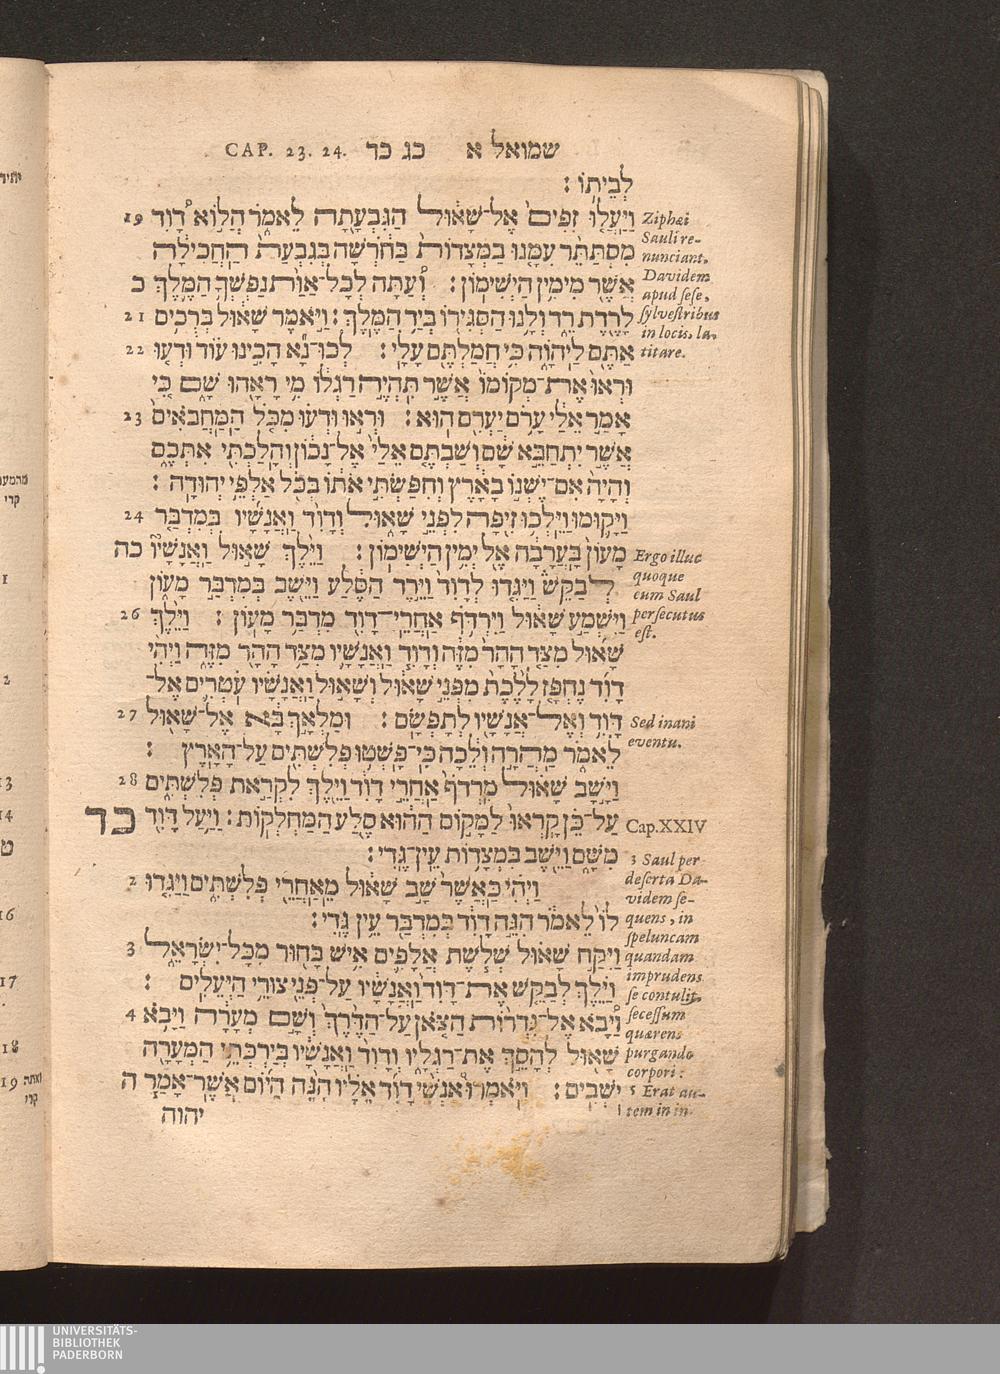 CAP. 23. 24. שמואל א כג כד
לְבֵיתֽוֹ׃
19 וַיַּעֲל֤וּ זִפִים֙ אֶל־שָׁא֔וּל הַגִּבְעָ֖תָה לֵאמֹ֑ר הֲל֣וֹא דָ֠וִד
מִסְתַּתֵּ֨ר עִמָּ֤נוּ בַמְּצָדוֹת֙ בַּחֹ֔רְשָׁה בְּגִבְעַת֙ הַֽחֲכִילָ֔ה
אֲשֶׁ֖ר מִימִ֥ין הַיְשִׁימֽוֹן׃ וְ֠עַתָּה לְכָל־אַוַּ֨ת נַפְשְׁךָ֥ הַמֶּ֛לֶךְ כ
21 לָרֶ֖דֶת רֵ֑ד וְלָ֥נוּ הַסְגִּיר֖וֹ בְּיַ֥ד הַמֶּֽלֶךְ׃ וַיֹּ֣אמֶר שָׁא֔וּל בְּרוּכִ֥ים
22 אַתֶּ֖ם לַֽיהוָ֑ה כִּ֥י חֲמַלְתֶּ֖ם עָלָֽי׃ לְכוּ־נָ֞א הָכִ֣ינוּ ע֗וֹד וּדְע֤וּ
וּרְאוּ֙ אֶת־מְקוֹמוֹ֙ אֲשֶׁ֣ר תִּֽהְיֶ֣ה רַגְל֔וֹ מִ֥י רָאָ֖הוּ שָׁ֑ם כִּ֚י
23 אָמַ֣ר אֵלַ֔י עָר֥ם יַעְרִ֖ם הֽוּא׃ וּרְא֣וּ וּדְע֗וּ מִכֹּ֤ל הַמַּֽחֲבֹאִים֙
אֲשֶׁ֣ר יִתְחַבֵּ֣א שָׁ֔ם וְשַׁבְתֶּ֤ם אֵלַי֙ אֶל־נָכ֔וֹן וְהָלַכְתִּ֖י אִתְּכֶ֑ם
וְהָיָה֙ אִם־יֶשְׁנ֣וֹ בָאָ֔רֶץ וְחִפַּשְׂתִּ֣י אֹת֔וֹ בְּכֹ֖ל אַלְפֵ֥י יְהוּדָֽה׃
24 וַיָּק֛וּמוּ וַיֵּלְכ֥וּ זִ֖יפָה לִפְנֵ֣י שָׁא֑וּל וְדָוִ֨ד וַאֲנָשָׁ֜יו בְּמִדְבַּ֤ר
מָעוֹן֙ בָּעֲרָבָ֔ה אֶ֖ל יְמִ֥ין הַיְשִׁימֽוֹן׃ וַיֵּ֨לֶךְ שָׁא֣וּל וַאֲנָשָׁיו֮ כה
לְבַקֵּשׁ֒ וַיַּגִּ֤דוּ לְדָוִד֙ וַיֵּ֣רֶד הַסֶּ֔לַע וַיֵּ֖שֶׁב בְּמִדְבַּ֣ר מָע֑וֹן
26 וַיִּשְׁמַ֣ע שָׁא֔וּל וַיִּרְדֹּ֥ף אַחֲרֵֽי־דָוִ֖ד מִדְבַּ֥ר מָעֽוֹן׃ וַיֵּ֨לֶךְ
שָׁא֜וּל מִצַּ֤ד הָהָר֙ מִזֶּ֔ה וְדָוִ֧ד וַאֲנָשָׁ֛יו מִצַּ֥ד הָהָ֖ר מִזֶּ֑ה וַיְהִ֨י
דָוִ֜ד נֶחְפָּ֤ז לָלֶ֙כֶת֙ מִפְּנֵ֣י שָׁא֔וּל וְשָׁא֣וּל וַאֲנָשָׁ֗יו עֹֽטְרִ֛ים אֶל־
27 דָּוִ֥ד וְאֶל־אֲנָשָׁ֖יו לְתָפְשָֽׂם׃ וּמַלְאָ֣ךְ בָּ֔א אֶל־שָׁא֖וּל
לֵאמֹ֑ר מַהֲרָ֣ה וְלֵ֔כָה כִּֽי־פָשְׁט֥וּ פְלִשְׁתִּ֖ים עַל־הָאָֽרֶץ׃
28 וַיָּ֣שָׁב שָׁא֗וּל מִרְדֹף֙ אַחֲרֵ֣י דָוִ֔ד וַיֵּ֖לֶךְ לִקְרַ֣את פְּלִשְׁתִּ֑ים
עַל־כֵּ֗ן קָֽרְאוּ֙ לַמָּק֣וֹם הַה֔וּא סֶ֖לַע הַֽמַּחְלְקֽוֹת׃ וַיַּ֥עַל דָּוִ֖ד כד
מִשָּׁ֑ם וַיֵּ֖שֶׁב בִּמְצָד֥וֹת עֵֽין־גֶּֽדִי׃
2 וַיְהִ֗י כַּאֲשֶׁר֙ שָׁ֣ב שָׁא֔וּל מֵאַחֲרֵ֖י פְּלִשְׁתִּ֑ים וַיַּגִּ֤דוּ
לוֹ֙ לֵאמֹ֔ר הִנֵּ֣ה דָוִ֔ד בְּמִדְבַּ֖ר עֵ֥ין גֶּֽדִי׃
3 וַיִּקַּ֣ח שָׁא֗וּל שְׁלֹ֧שֶׁת אֲלָפִ֛ים אִ֥ישׁ בָּח֖וּר מִכָּל־יִשְׂרָאֵ֑ל
וַיֵּ֗לֶךְ לְבַקֵּ֤שׁ אֶת־דָּוִד֙ וַֽאֲנָשָׁ֔יו עַל־פְּנֵ֖י צוּרֵ֥י הַיְּעֵלִֽים׃
4 וַ֠יָּבֹא אֶל־גִּדְר֨וֹת הַצֹּ֤אן עַל־הַדֶּ֙רֶךְ֙ וְשָׁ֣ם מְעָרָ֔ה וַיָּבֹ֥א
שָׁא֖וּל לְהָסֵ֣ךְ אֶת־רַגְלָ֑יו וְדָוִד֙ וַאֲנָשָׁ֔יו בְּיַרְכְּתֵ֥י הַמְּעָרָ֖ה
יֹשְׁבִֽים׃ וַיֹּאמְרוּ֩ אַנְשֵׁ֨י דָוִ֜ד אֵלָ֗יו הִנֵּ֨ה הַיּ֜וֹם אֲשֶׁר־אָמַ֧ר ה
יהוה
Ziphæi
Sauli re-
nunciant,
Davidem
apud sese,
sylvestribus
in locis, la-
titare.
Ergo illuc
quoque
eum Saul
persecutus
est.
Sed inani
eventu.
Cap.XXIV
3 Saul per
deserta Da-
videm se-
quens, in
speluncam
quandam
imprudens
se contulit,
secessum
quærens
purgando
corpori:
5 Erat au-
tem in in-
מהמע
קרי
1
2
13
14
ט
16
17
18
19 ואתה
קרי
UNIVERSITÄTS-
BIBLIOTHEK
PADERBORN